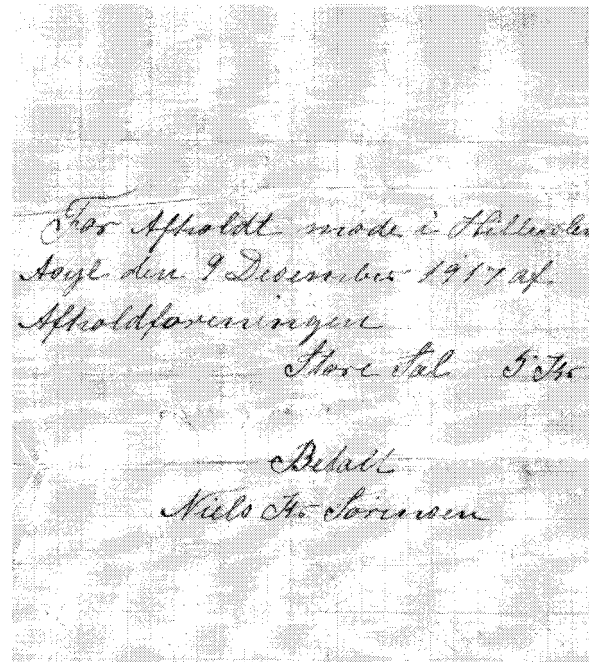 For Afholdt møde i Hillerslev
Asyl den 9 Desember 1917 af.
Afholdforeningen
Store Sal 5 Kr
Betalt
Niels Kr Sørensen